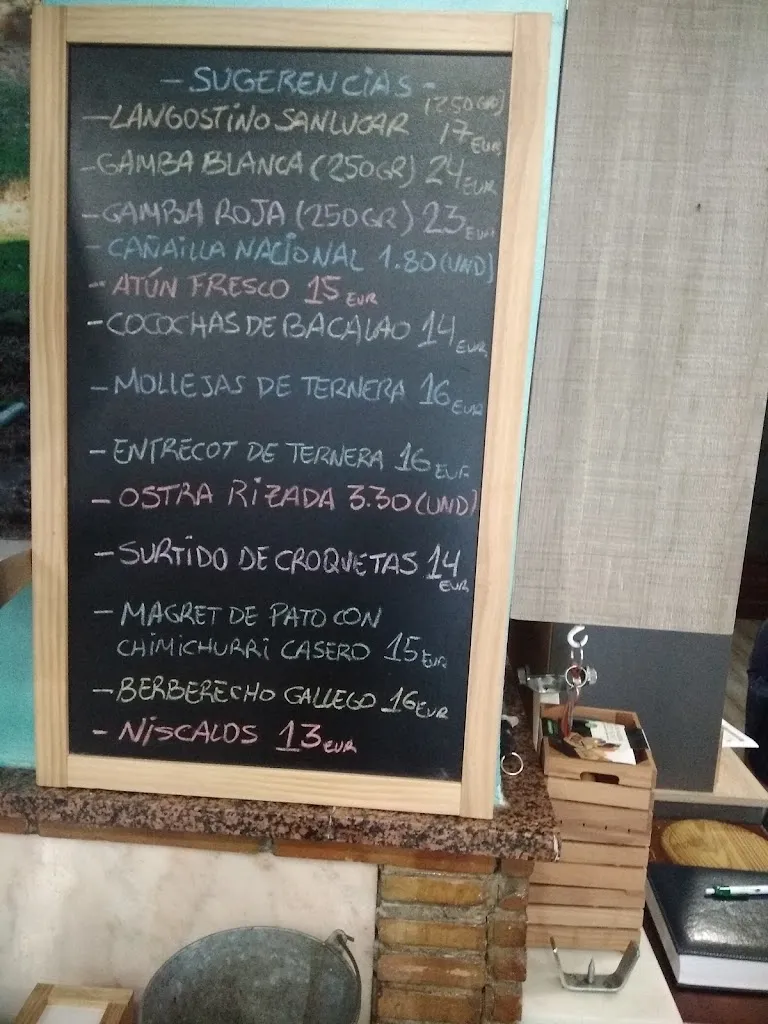 - SUGERENCIAS -
- LANGOSTINO SANLUCAR (250GR) 17 EUR
- GAMBA BLANCA (250GR) 24 EUR
- GAMBA ROJA (250GR) 23 EUR
- CAÑAILLA NACIONAL 1.80 (UND)
- ATÚN FRESCO 15 EUR
- COCOCHAS DE BACALAO 14 EUR
- MOLLEJAS DE TERNERA 16 EUR
- ENTRECOT DE TERNERA 16 EUR
- OSTRA RIZADA 3.30 (UND)
- SURTIDO DE CROQUETAS 14 EUR
- MAGRET DE PATO CON
CHIMICHURRI CASERO 15 EUR
- BERBERECHO GALLEGO 16 EUR
- NISCALOS 13 EUR